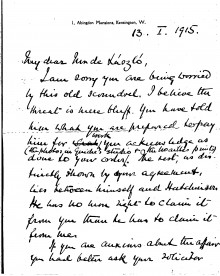 1, Abingdon Mansions, Kensington, W.
13. I. 1915.
My dear Mr de László,
I am sorry you are being worried
by this old scoundrel. I believe the
threat is mere bluff. You have told
him what you are prepared to pay
him for work you acknowledge as
done to your order. The rest, as dis-
tinctly shown by your agreement,
lies between himself and Hutchinson.
He has no more right to claim it
from you than he has to claim it
from me.
If you are anxious about the affair
you had better ask your solicitor